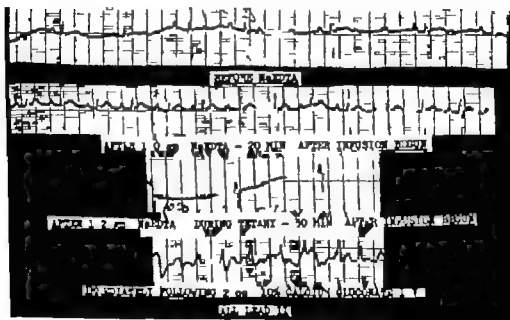 BEFORE NaEDTA
AFTER 1.0 gm NaEDTA - 20 MIN AFTER INFUSION BEGUN
AFTER 1.2 gm NaEDTA DURING TETANY - 30 MIN AFTER INFUSION BEGUN
IMMEDIATELY FOLLOWING 2 gm 10% CALCIUM GLUCONATE I V
ALL LEAD II